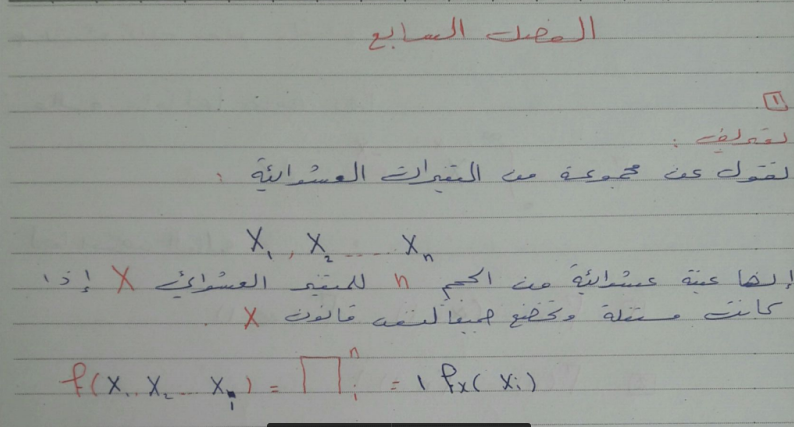 الفصل السابع
١
تعريف :
نقول عن مجموعة من المتغيرات العشوائية :
X₁ , X₂ .... Xₙ
إنها عينة عشوائية من الحجم n للمتغير العشوائي X إذا
كانت مستقلة وتخضع جميعا لنفس قانون X .
f(X₁ .. X₂ ... Xₙ) = ∏ⁿᵢ = 1 fx( Xi )